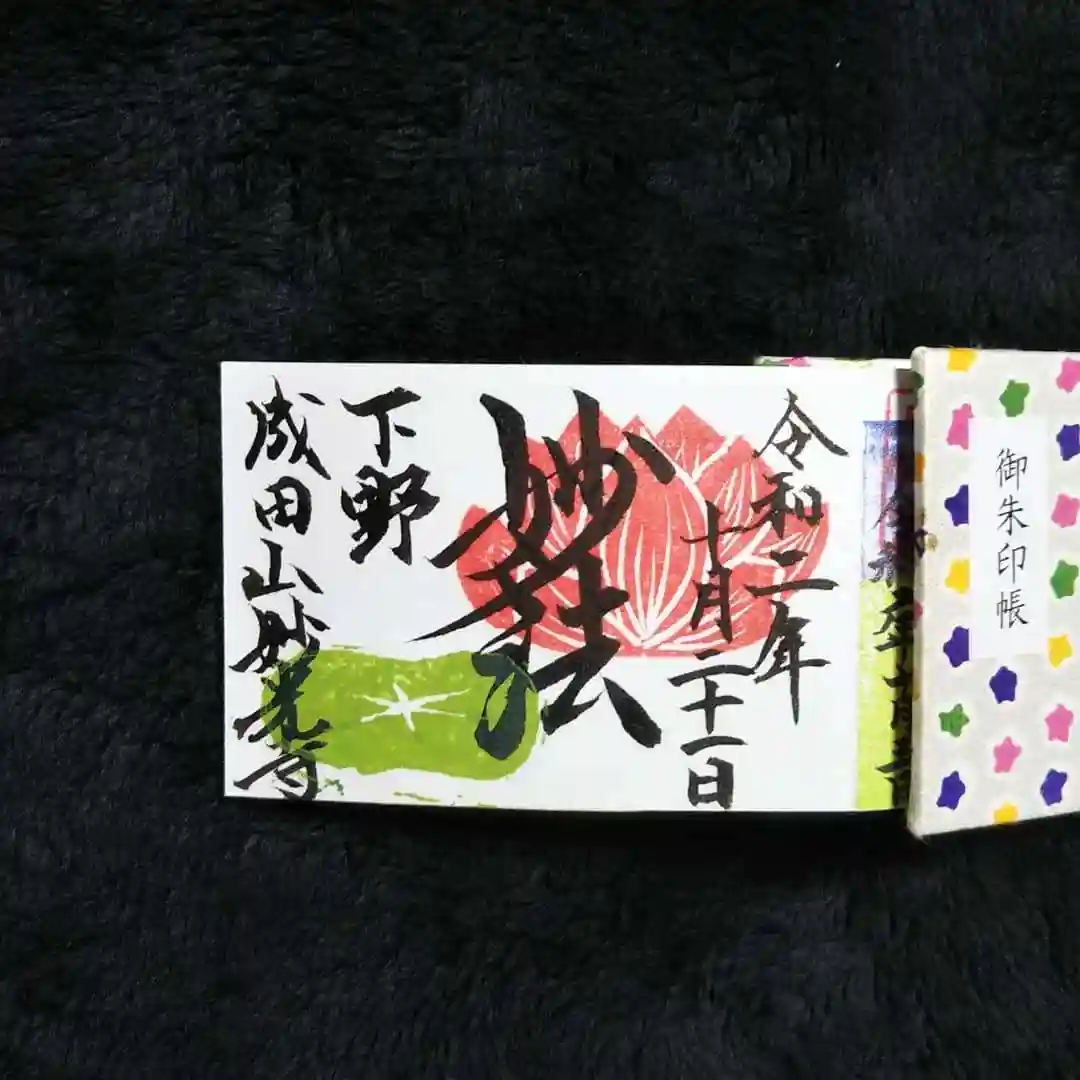 御朱印帳
令和二年
十月二十一日
妙法
下野
成田山妙光寺